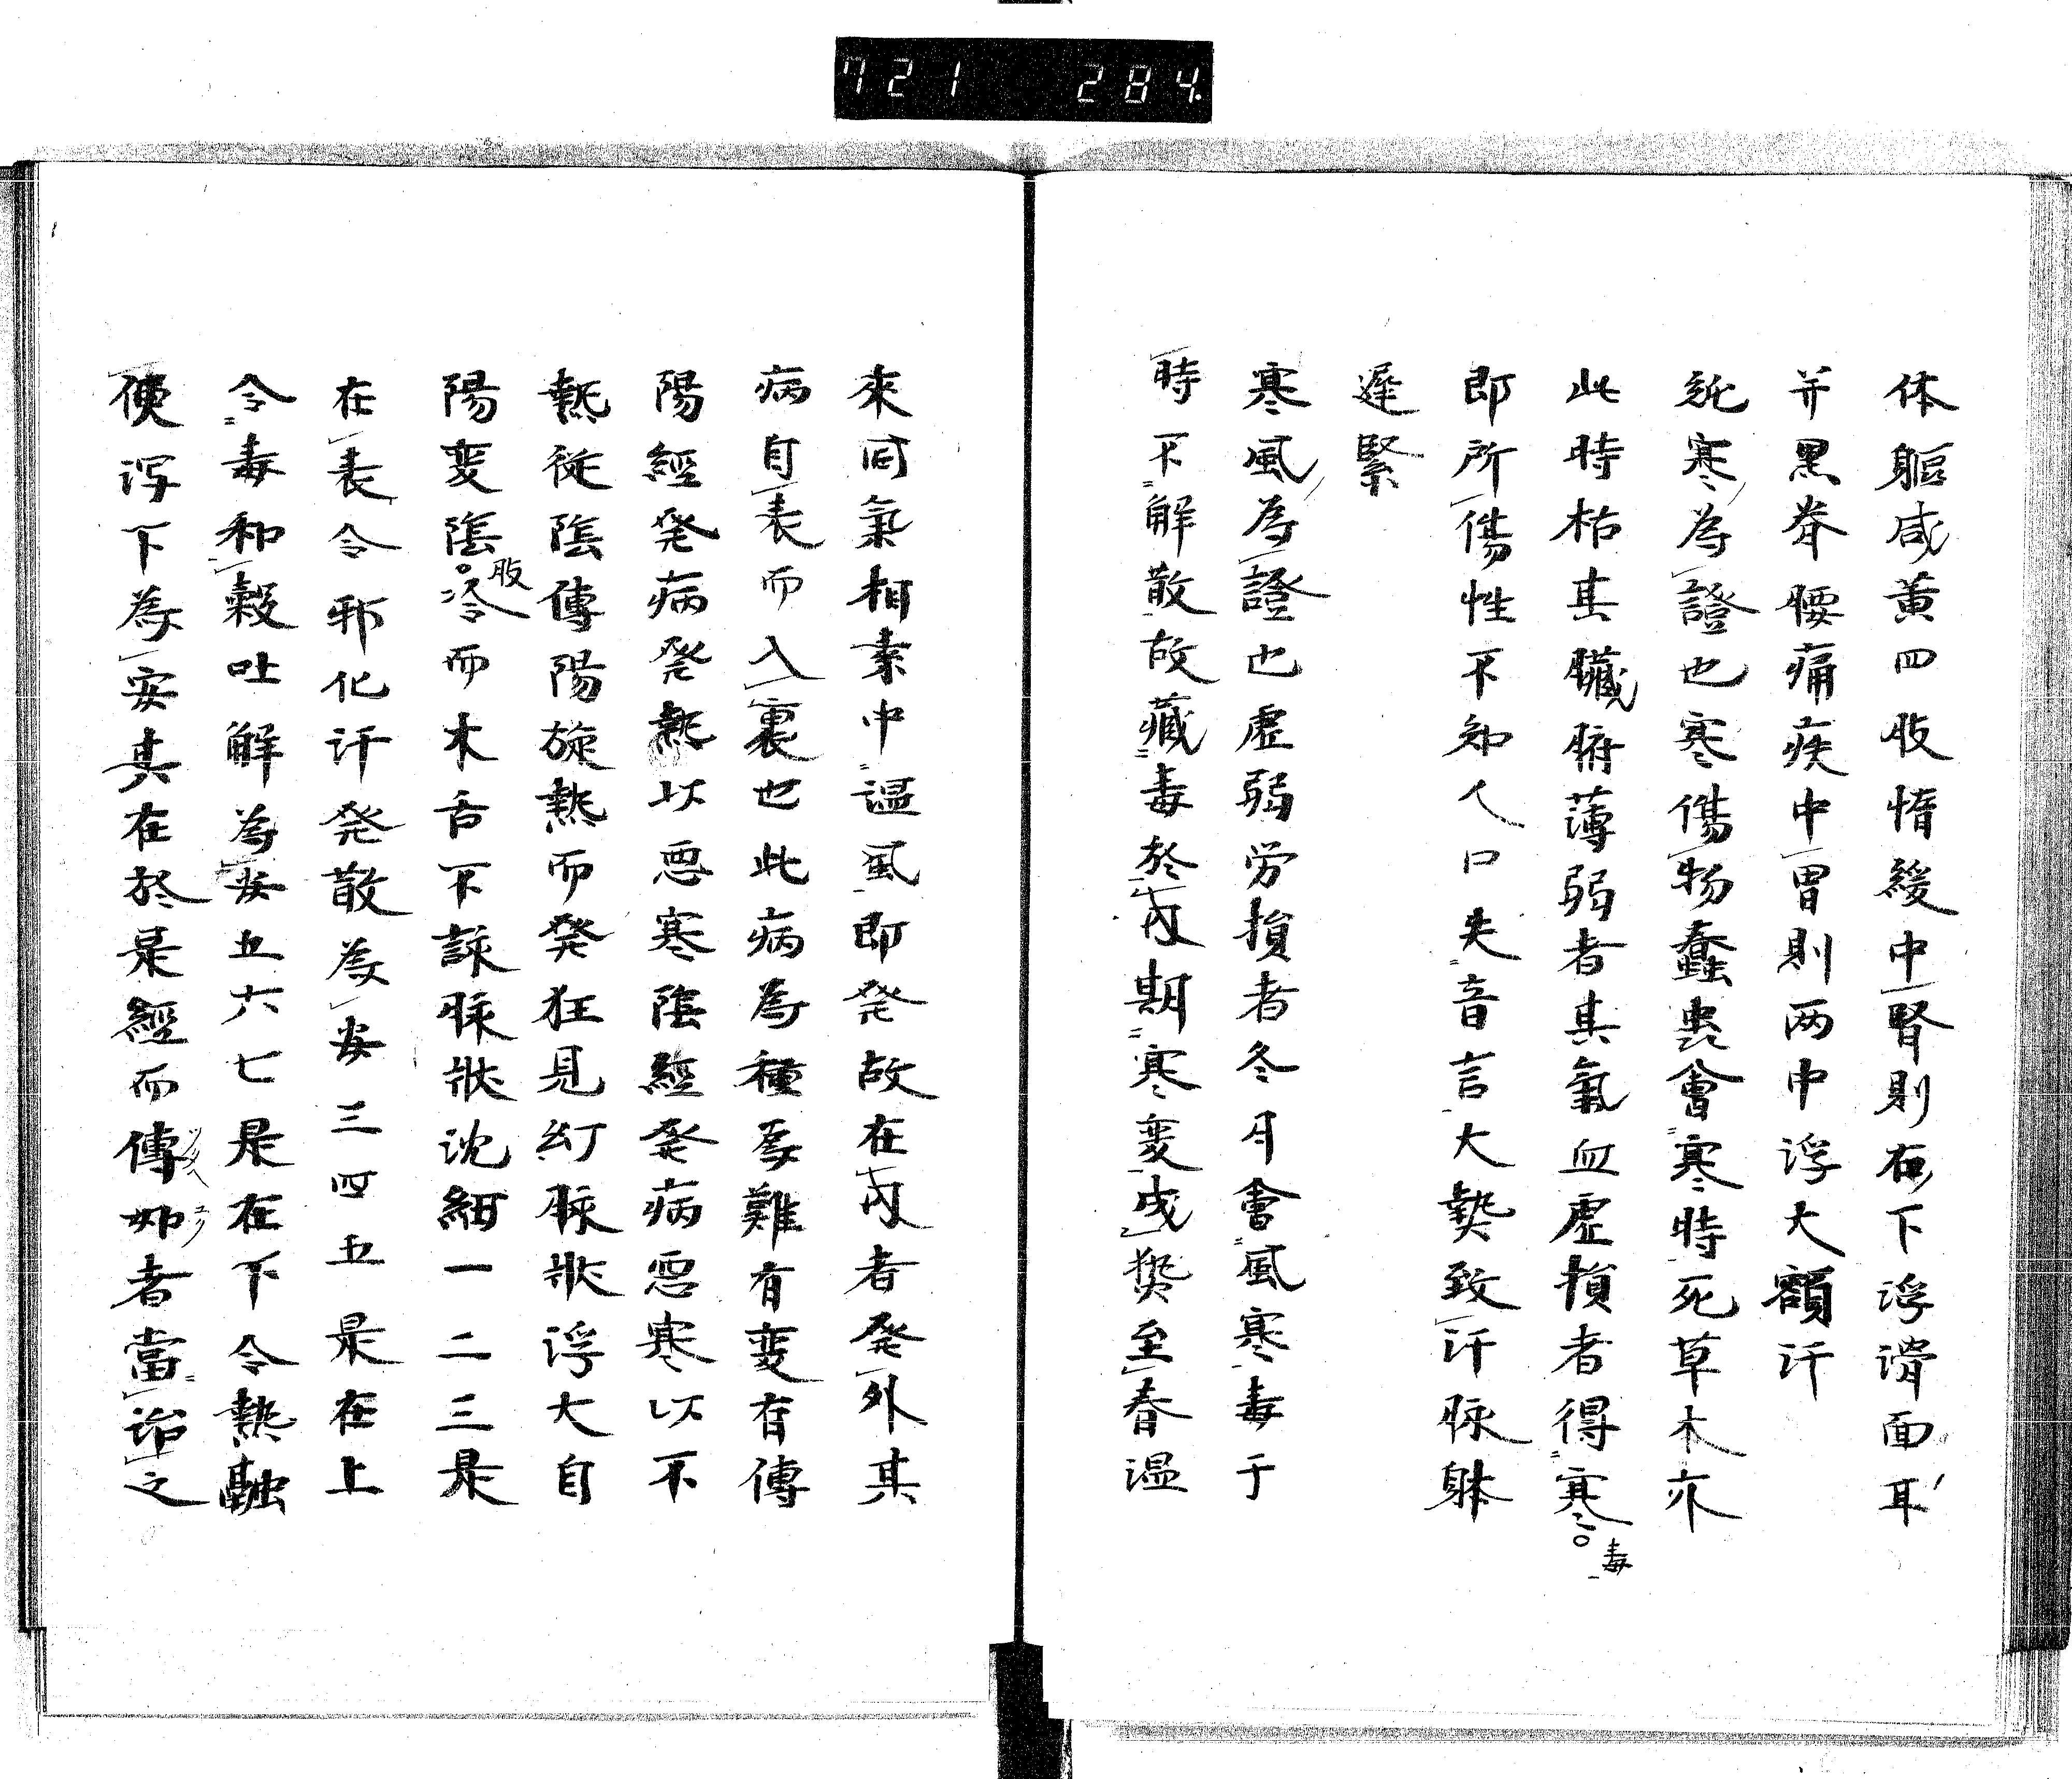 721 284
体軀咸黄四肢惰緩中腎則右下浮滑面耳
并黒脊腰痛疾中胃則两中浮大額汗
純寒為證也寒傷物蠢虫會寒時死草木亦
此時枯其臓腑薄弱者其氣血虚損者得寒毒
即所傷性不知人口失音言大𤍠致汗脉躰
遲緊
寒風為證也虚弱労損者冬月會風寒毒于
時不解散故藏毒於内期寒変成𤍠至春温
來同氣相素中温風即発故在内者発外其
病自表而入裏也此病為種㕝難有変有傳
陽經発病発熱以悪寒陰經発病悪寒以不
熱従陰傳陽旋熱而発狂見幻脉状浮大自
陽変陰肢冷而木舌不諒脉状沈細一二三是
在表令邪化汗発散為安三四五是在上
令毒和穀吐解為安五六七是在下令熱融
便泻下為安其在於是經而傳如者當治之